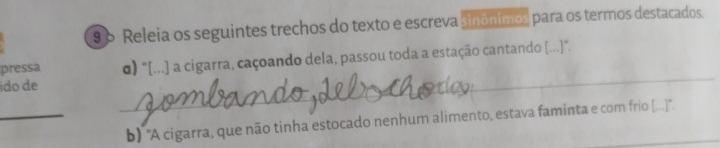 9 Releia os seguintes trechos do texto e escreva sinônimos para os termos destacados.
pressa
a) "[...] a cigarra, caçoando dela, passou toda a estação cantando [...]".
ido de
zombando, debochando
b) "A cigarra, que não tinha estocado nenhum alimento, estava faminta e com frio [...]".